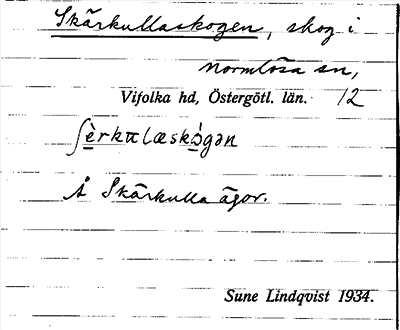 Skärkullaskogen, skog i
Normlösa sn,
Vifolka hd, Östergötl. län. 12
ʃèrkulæskógən
Å Skärkulla ägor.
Sune Lindqvist 1934.